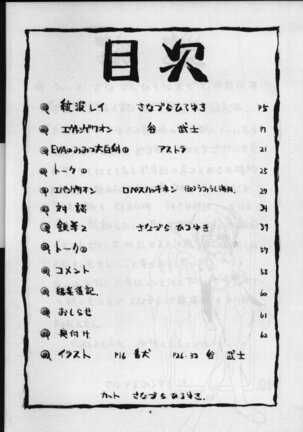 目次
綾波レイ さなづらひろゆき P5
エヴァンゲリオン 谷 武士 17
EVAのひみつ大百科① アストラ 21
トーク① 25
エバンゲリオン 29
対談 34
鉄拳2 さなづらひろゆき 39
トーク② 57
コメント 58
編集後記 60
おしらせ 61
奥付け 62
イラスト P16 P26.33 谷 武士
カット さなづらひろゆき